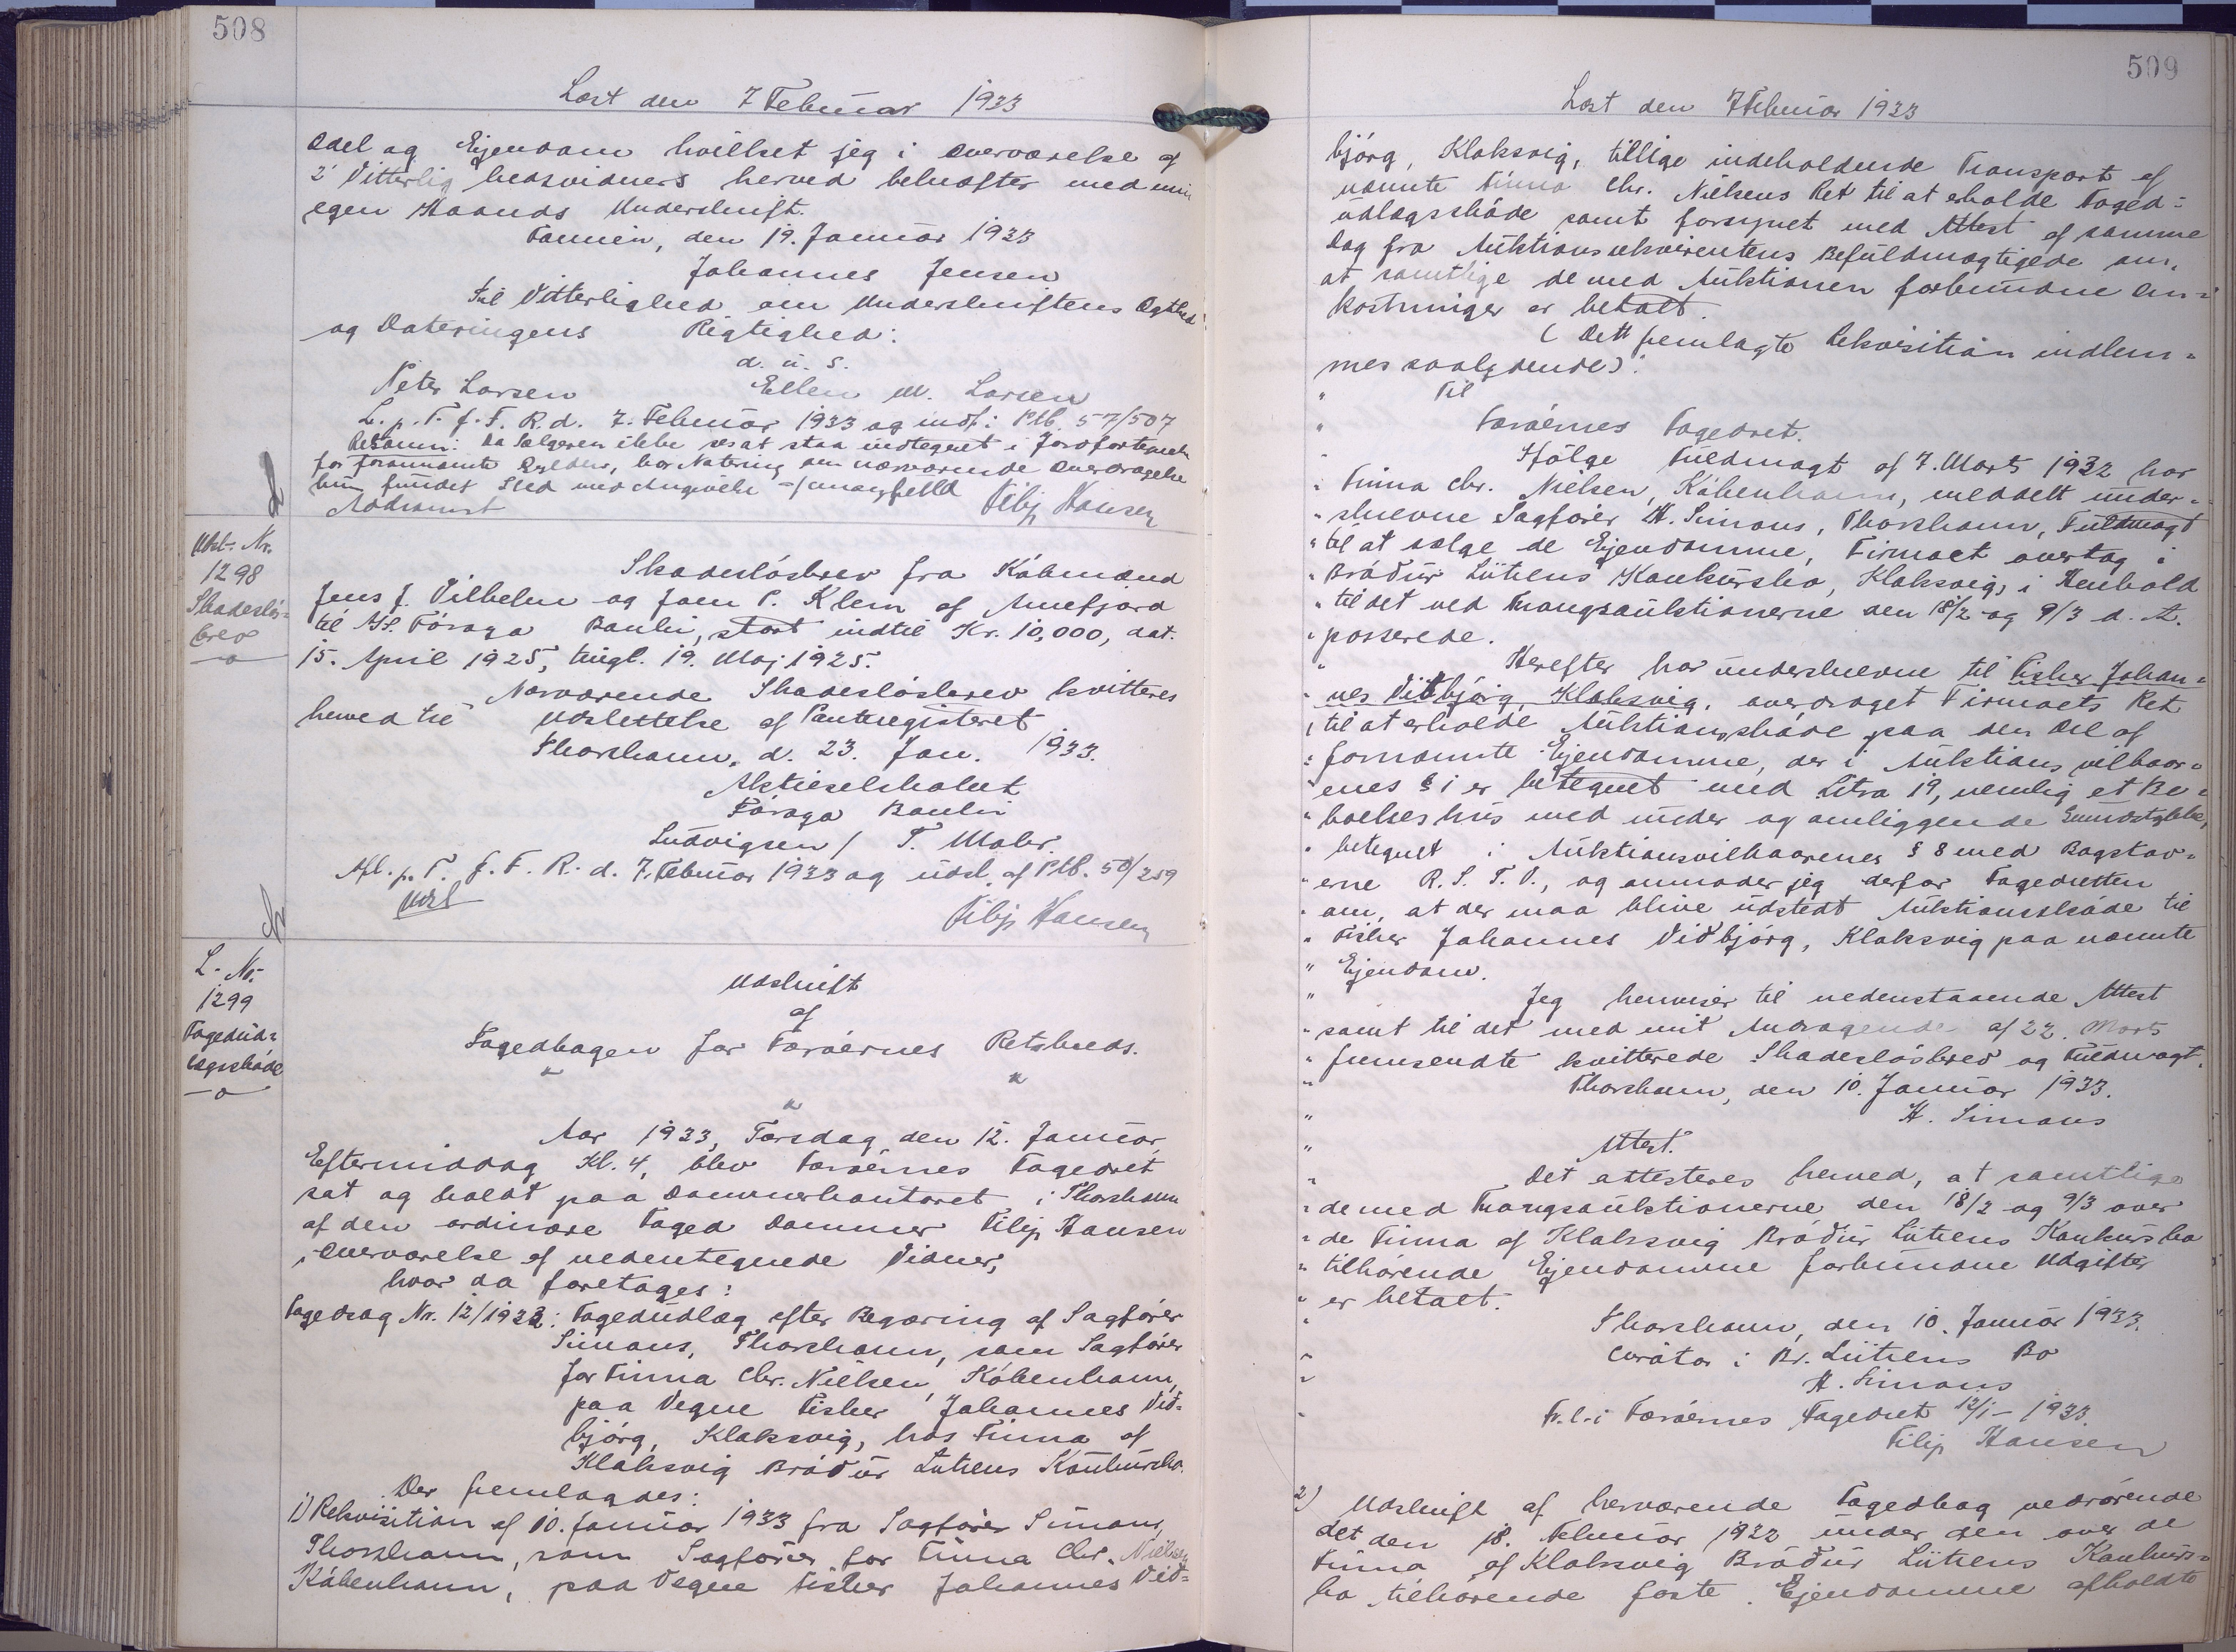 508
Læst den 7 Februar 1933
Odel og Ejendom hvilket jeg i Overværelse af
2 Vitterlighedsvidners herved bekræfter med min
egen Haands Underskrift.
den 19. Januar 1933
Johannes Jensen
Til Vitterlighed om Underskriftens Ægthed
og Dateringens Rigtighed:
d. u. s.
Peter Larsen Ellen M. Larsen
L. p. T. f. F. R. d. 7. Februar 1933 og indf. i Ptb. 57/507
Retsanm: Da Sælgeren ikke ses at staa indtegnet i Jordfortegnels
for forannævnte Gylden, har Notering om nærværende Overdragelse
kun fundet Sted med Angivelse
Filip Hansen
Udsl. Nr.
1298
Skadesløs=
brev
Skadesløsbrev fra Købmænd
Jens J. Vilhelm og Joen P. Klein af Annefjord
til A/S. Föroya Banki, stort indtil Kr. 10,000, dat.
15. April 1925, tingl. 19. Maj 1925.
Nærværende Skadesløsbrev kvitteres
herved til Udslettelse af Panteregisteret
Thorshavn, d. 23. Jan. 1933.
Aktieselskabet
Föroya Banki
Ludvigsen / T. Mohr.
Afl. p. T. f. F. R. d. 7. Februar 1933 og udsl. af Ptb. 50/259
Udsl
Filip Hansen
L. Nr.
1299
Fogedud=
lægsskøde
Udskrift
af
Fogedbogen for Færøernes Retskreds.
Aar 1933, Torsdag den 12. Januar,
Eftermiddag Kl. 4, blev Færøernes Fogedret
sat og holdt paa Dommerkontoret i Thorshavn
af den ordinære Foged Dommer Filip Hansen
i Overværelse af nedentegnede Vidner,
hvor da foretages:
Fogedsag Nr. 12/1932: Fogedudlæg efter Begæring af Sagfører
Simons, Thorshavn, som Sagfører
for Firma Chr. Nielsen, København,
paa Vegne Fisker Johannes Vid=
bjørg, Klaksvig, hos Firma af
Klaksvig Bródur Lützens Konkursbo.
Der fremlagdes:
1) Rekvisition af 10. Januar 1933 fra Sagfører Simons,
Thorshavn, som Sagfører for Firma Chr. Nielsen
København, paa Vegne Fisker Johannes Vid=
509
Læst den 7 Februar 1933
bjørg, Klaksvig, tillige indeholdende Transport af
nævnte Firma Chr. Nielsens Ret til at erholde Foged=
udlægsskøde samt forsynet med Attest af samme
Dag fra Auktionsrekvirentens Befuldmægtigede om,
at samtlige de med Auktionen forbundne Om=
kostninger er betalt.
(Dett fremlagte Rekvisition indlem=
mes saalydende):
" Til
" Færøernes Fogedret.
" Ifølge Fuldmagt af 7. Marts 1932 har
" Firma Chr. Nielsen, København, meddelt under=
" skrevne Sagfører H. Simons, Thorshavn, Fuldmagt
" til at sælge de Ejendomme, Firmaet overtog i
" Bródur Lützens Konkursbo, Klaksvig, i Henhold
" til det ved Tvangsauktionerne den 18/2 og 9/3 d. A.
" passerede.
" Herefter har underskrevne til Fisker Johan=
" nes Vidbjørg, Klaksvig, overdraget Firmaets Ret
" til at erholde Auktionsskøde paa den Del af
" fornævnte Ejendomme, der i Auktionsvilkaar=
" enes § 1 er betegnet med Litra 19, nemlig et Be=
" boelseshus med under og omliggende Grundstykke,
" betegnet i Auktionsvilkaarenes § 8 med Bogstav=
" erne R. S. T. V., og anmoder jeg derfor Fogedretten
" om, at der maa blive udstedt Auktionsskøde til
" Fisker Johannes Vidbjørg, Klaksvig paa nævnte
" Ejendom.
" Jeg henviser til nedenstaaende Attest
" samt til det med mit Andragende af 22. Marts
" fremsendte kvitterede Skadesløsbrev og Fuldmagt.
" Thorshavn, den 10. Januar 1933.
" H. Simons
" Attest.
" Det attesteres herved, at samtlige
" de med Tvangsauktionerne den 18/2 og 9/3 over
" de Firma af Klaksvig Bródur Lützens Konkursbo
" tilhørende Ejendomme forbundne Udgifter
" er betalt.
" Thorshavn, den 10. Januar 1933.
" Curator i Br. Lützens Bo
" H. Simons
" Fr. l. i Færøernes Fogedret 12/1 - 1933.
Filip Hansen
2) Udskrift af herværende Fogedbog vedrørende
det den 18. Februar 1932 under den over de
Firma af Klaksvig Bródur Lützens Konkurs=
bo tilhørende faste Ejendomme afholdte